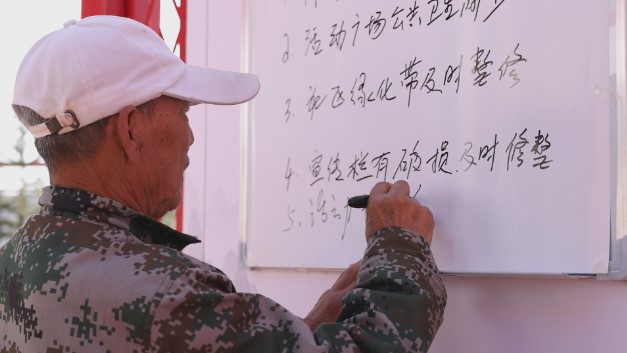 2. 活动广场公共卫生间少
3. 绿化带及时整修
4. 宣传栏有破损.及时修整
5. 活动